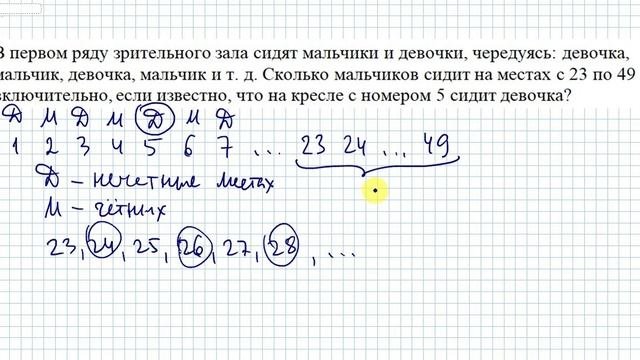 В первом ряду зрительного зала сидят мальчики и девочки, чередуясь: девочка,
мальчик, девочка, мальчик и т. д. Сколько мальчиков сидит на местах с 23 по 49
включительно, если известно, что на кресле с номером 5 сидит девочка?
Д М Д М Д М Д
1 2 3 4 5 6 7 ... 23 24 ... 49
Д – нечетные местах
М – чётных
23, 24, 25, 26, 27, 28, ...